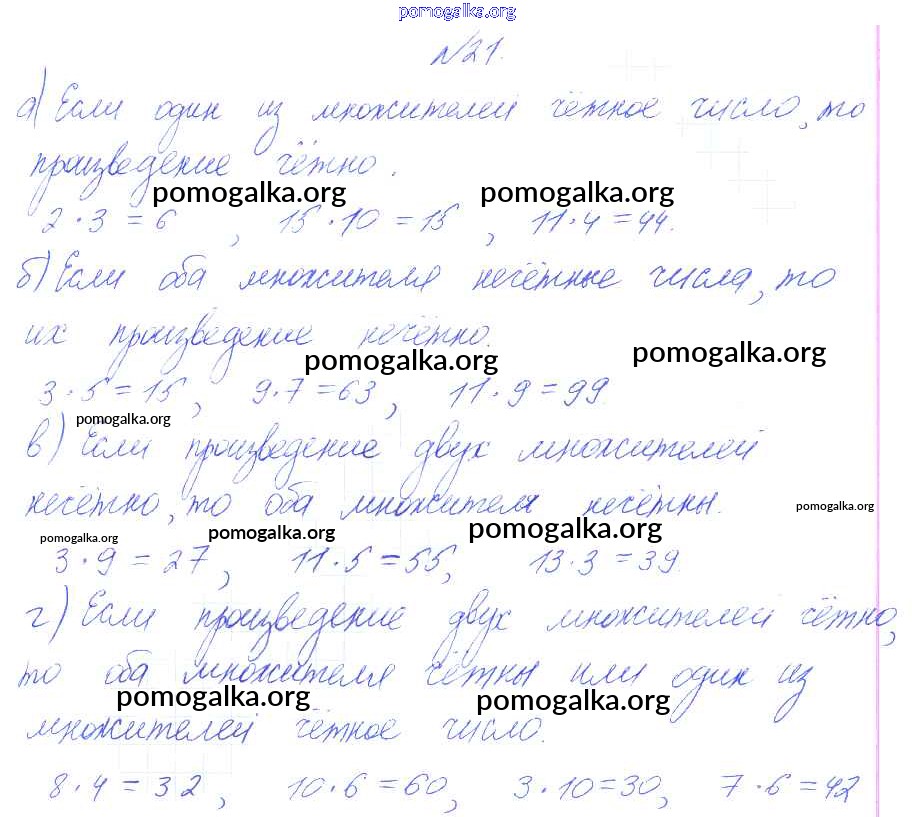 pomogalka.org
№21.
а) Если один из множителей чётное число, то
произведение чётно.
pomogalka.org pomogalka.org
2·3=6, 15·10=15, 11·4=44.
б) Если оба множителя нечётные числа, то
их произведение нечётно.
pomogalka.org pomogalka.org
3·5=15, 9·7=63, 11·9=99.
pomogalka.org
в) Если произведение двух множителей
нечётно, то оба множителя нечётны.
pomogalka.org pomogalka.org pomogalka.org pomogalka.org
3·9=27, 11·5=55, 13·3=39.
г) Если произведение двух множителей чётно,
то оба множителя чётны или один из
pomogalka.org pomogalka.org
множителей чётное число.
8·4=32, 10·6=60, 3·10=30, 7·6=42